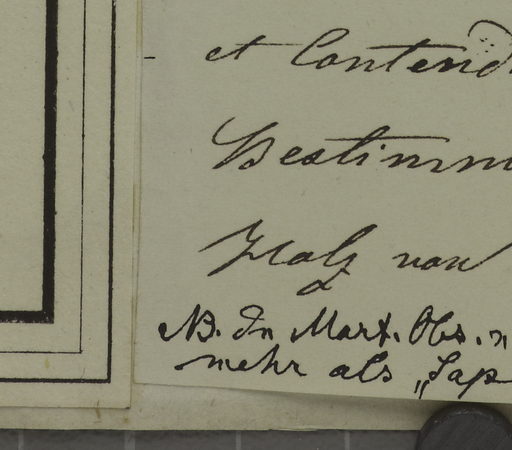 et Contend
Bestimm
Holz von
NB. In Mart. Obs. n
mehr als „Sap